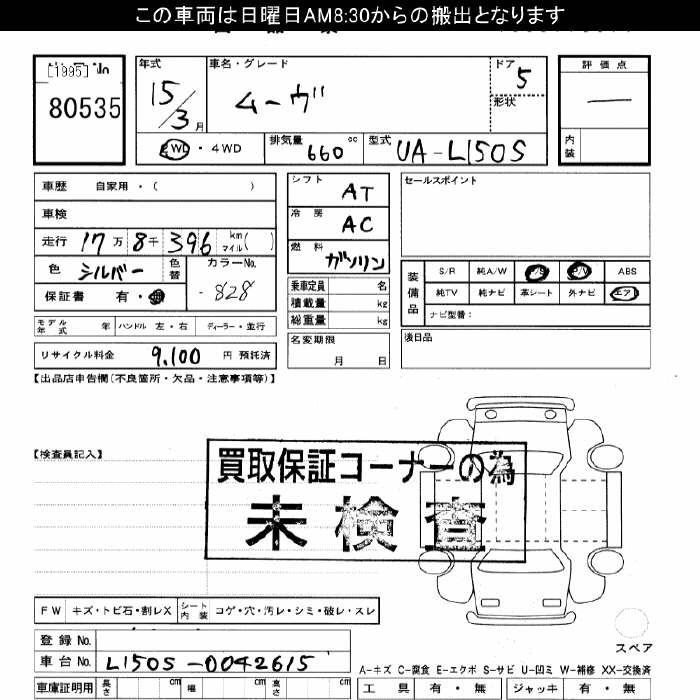 この車両は日曜日AM8:30からの搬出となります
[1995]
80535
年式
15/3月
車名・グレード
ムーヴ
ドア 5
形状
評価点
—
内装
2WD・4WD
排気量 660 cc
型式 UA-L150S
車歴 自家用・( )
車検
走行 17万8千396 km マイル( )
色 シルバー 色替 カラーNo. -828
保証書 有・
シフト AT
冷房 AC
燃料 ガソリン
乗車定員 名
積載量 kg
総重量 kg
名変期限 月 日
セールスポイント
装備品
S/R 純A/W P/S P/W ABS
純TV 純ナビ 革シート 外ナビ エア
ナビ型番:
後日品
モデル年式 年 ハンドル 左・右 ディーラー・並行
リサイクル料金 9,100 円 預託済
【出品店申告欄(不良箇所・欠品・注意事項等)】
【検査員記入】
買取保証コーナーの為
未検査
FW キズ・トビ石・割レX シート内装 コゲ・穴・汚レ・シミ・破レ・スレ
登録No.
車台No. L150S-0042615
スペア
A-キズ C-腐食 E-エクボ S-サビ U-凹ミ W-補修 XX-交換済
車庫証明用 長さ cm 幅 cm 高さ cm
工具 有・無 ジャッキ 有・無